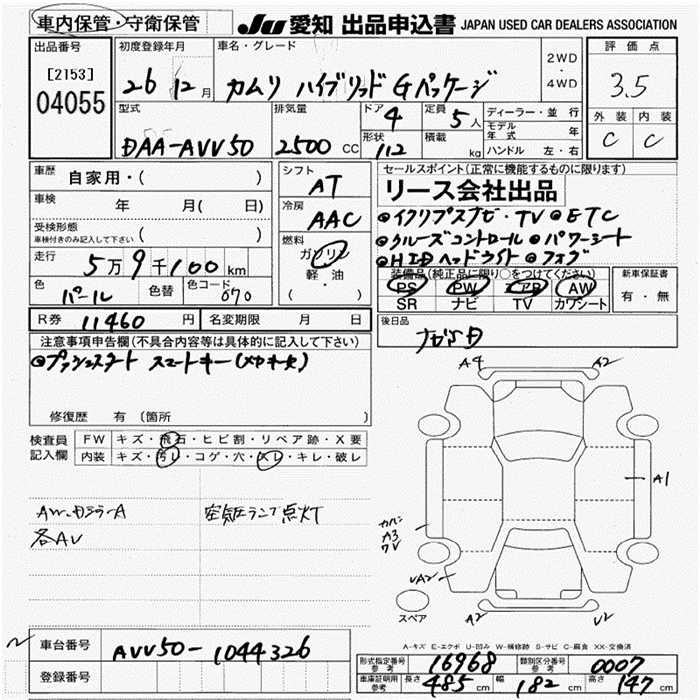 車内保管・守衛保管 JU 愛知 出品申込書 JAPAN USED CAR DEALERS ASSOCIATION
出品番号 初度登録年月 車名・グレード 評価点
[2153] 26年12月 カムリ ハイブリッド Gパッケージ 2WD・4WD 3.5
04055
型式 排気量 ドア 4 定員 5人 ディーラー・並行 外装 内装
DAA-AVV50 2500cc 形状 112 積載 kg モデル年式 年 C C
ハンドル 左・右
車歴 自家用・( ) シフト AT セールスポイント(正常に機能するものに限ります)
車検 年 月( 日) 冷房 AAC リース会社出品
受検形態 ◎イクリプスナビ・TV ◎ETC
車検付きのみ記入して下さい ( ) 燃料 ガソリン ◎クルーズコントロール ◎パワーシート
走行 5万9千100km 軽油 ◎HIDヘッドライト ◎フォグ
色 パール 色替 色コード 070 ( ・ ) 装備品(純正品に限り○をつけてください) 新車保証書
PS PW エアB AW 有・無
SR ナビ TV カワシート
R券 11460円 名変期限 月 日 後日品
注意事項申告欄(不具合内容等は具体的に記入して下さい) ナビ
◎プッシュスタート スマートキー
修復歴 有(箇所 )
検査員 FW キズ・飛石・ヒビ割・リペア跡・X要
記入欄 内装 キズ・汚レ・コゲ・穴・スレ・キレ・破レ
A4 A2
A1
空気圧ランプ点灯
A3
UA2
スペア A2 U2
A-キズ E-エクボ U-凹み W-補修跡 S-サビ C-腐食 XX-交換済
車台番号 AVV50-1044326
登録番号
形式指定番号 参考 16968 類別区分番号 参考 0007
車庫証明用 参考 長さ 485cm 幅 182cm 高さ 147cm